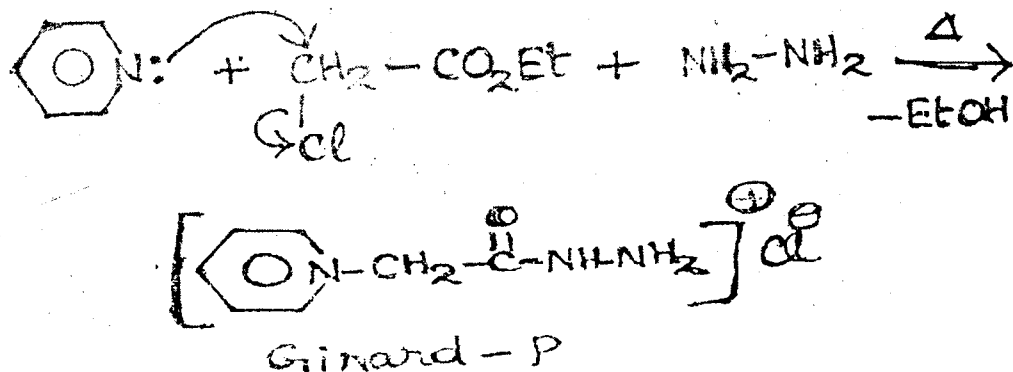 N: + CH2 – CO2Et + NH2–NH2 Δ
Cl –EtOH
[ N–CH2–C–NH–NH2 ]⊕ Cl⊖
O
Girard – P